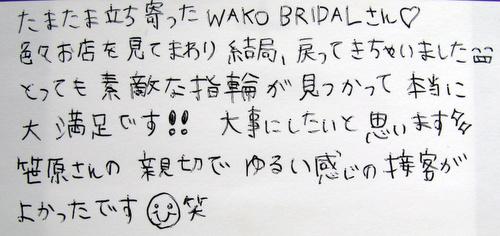 たまたま立ち寄った WAKO BRIDALさん♡
色々お店を見てまわり 結局、戻ってきちゃいました
とっても 素敵な指輪が 見つかって 本当に
大満足です!! 大事にしたいと 思います
笹原さんの 親切で ゆるい感じの接客が
よかったです 笑